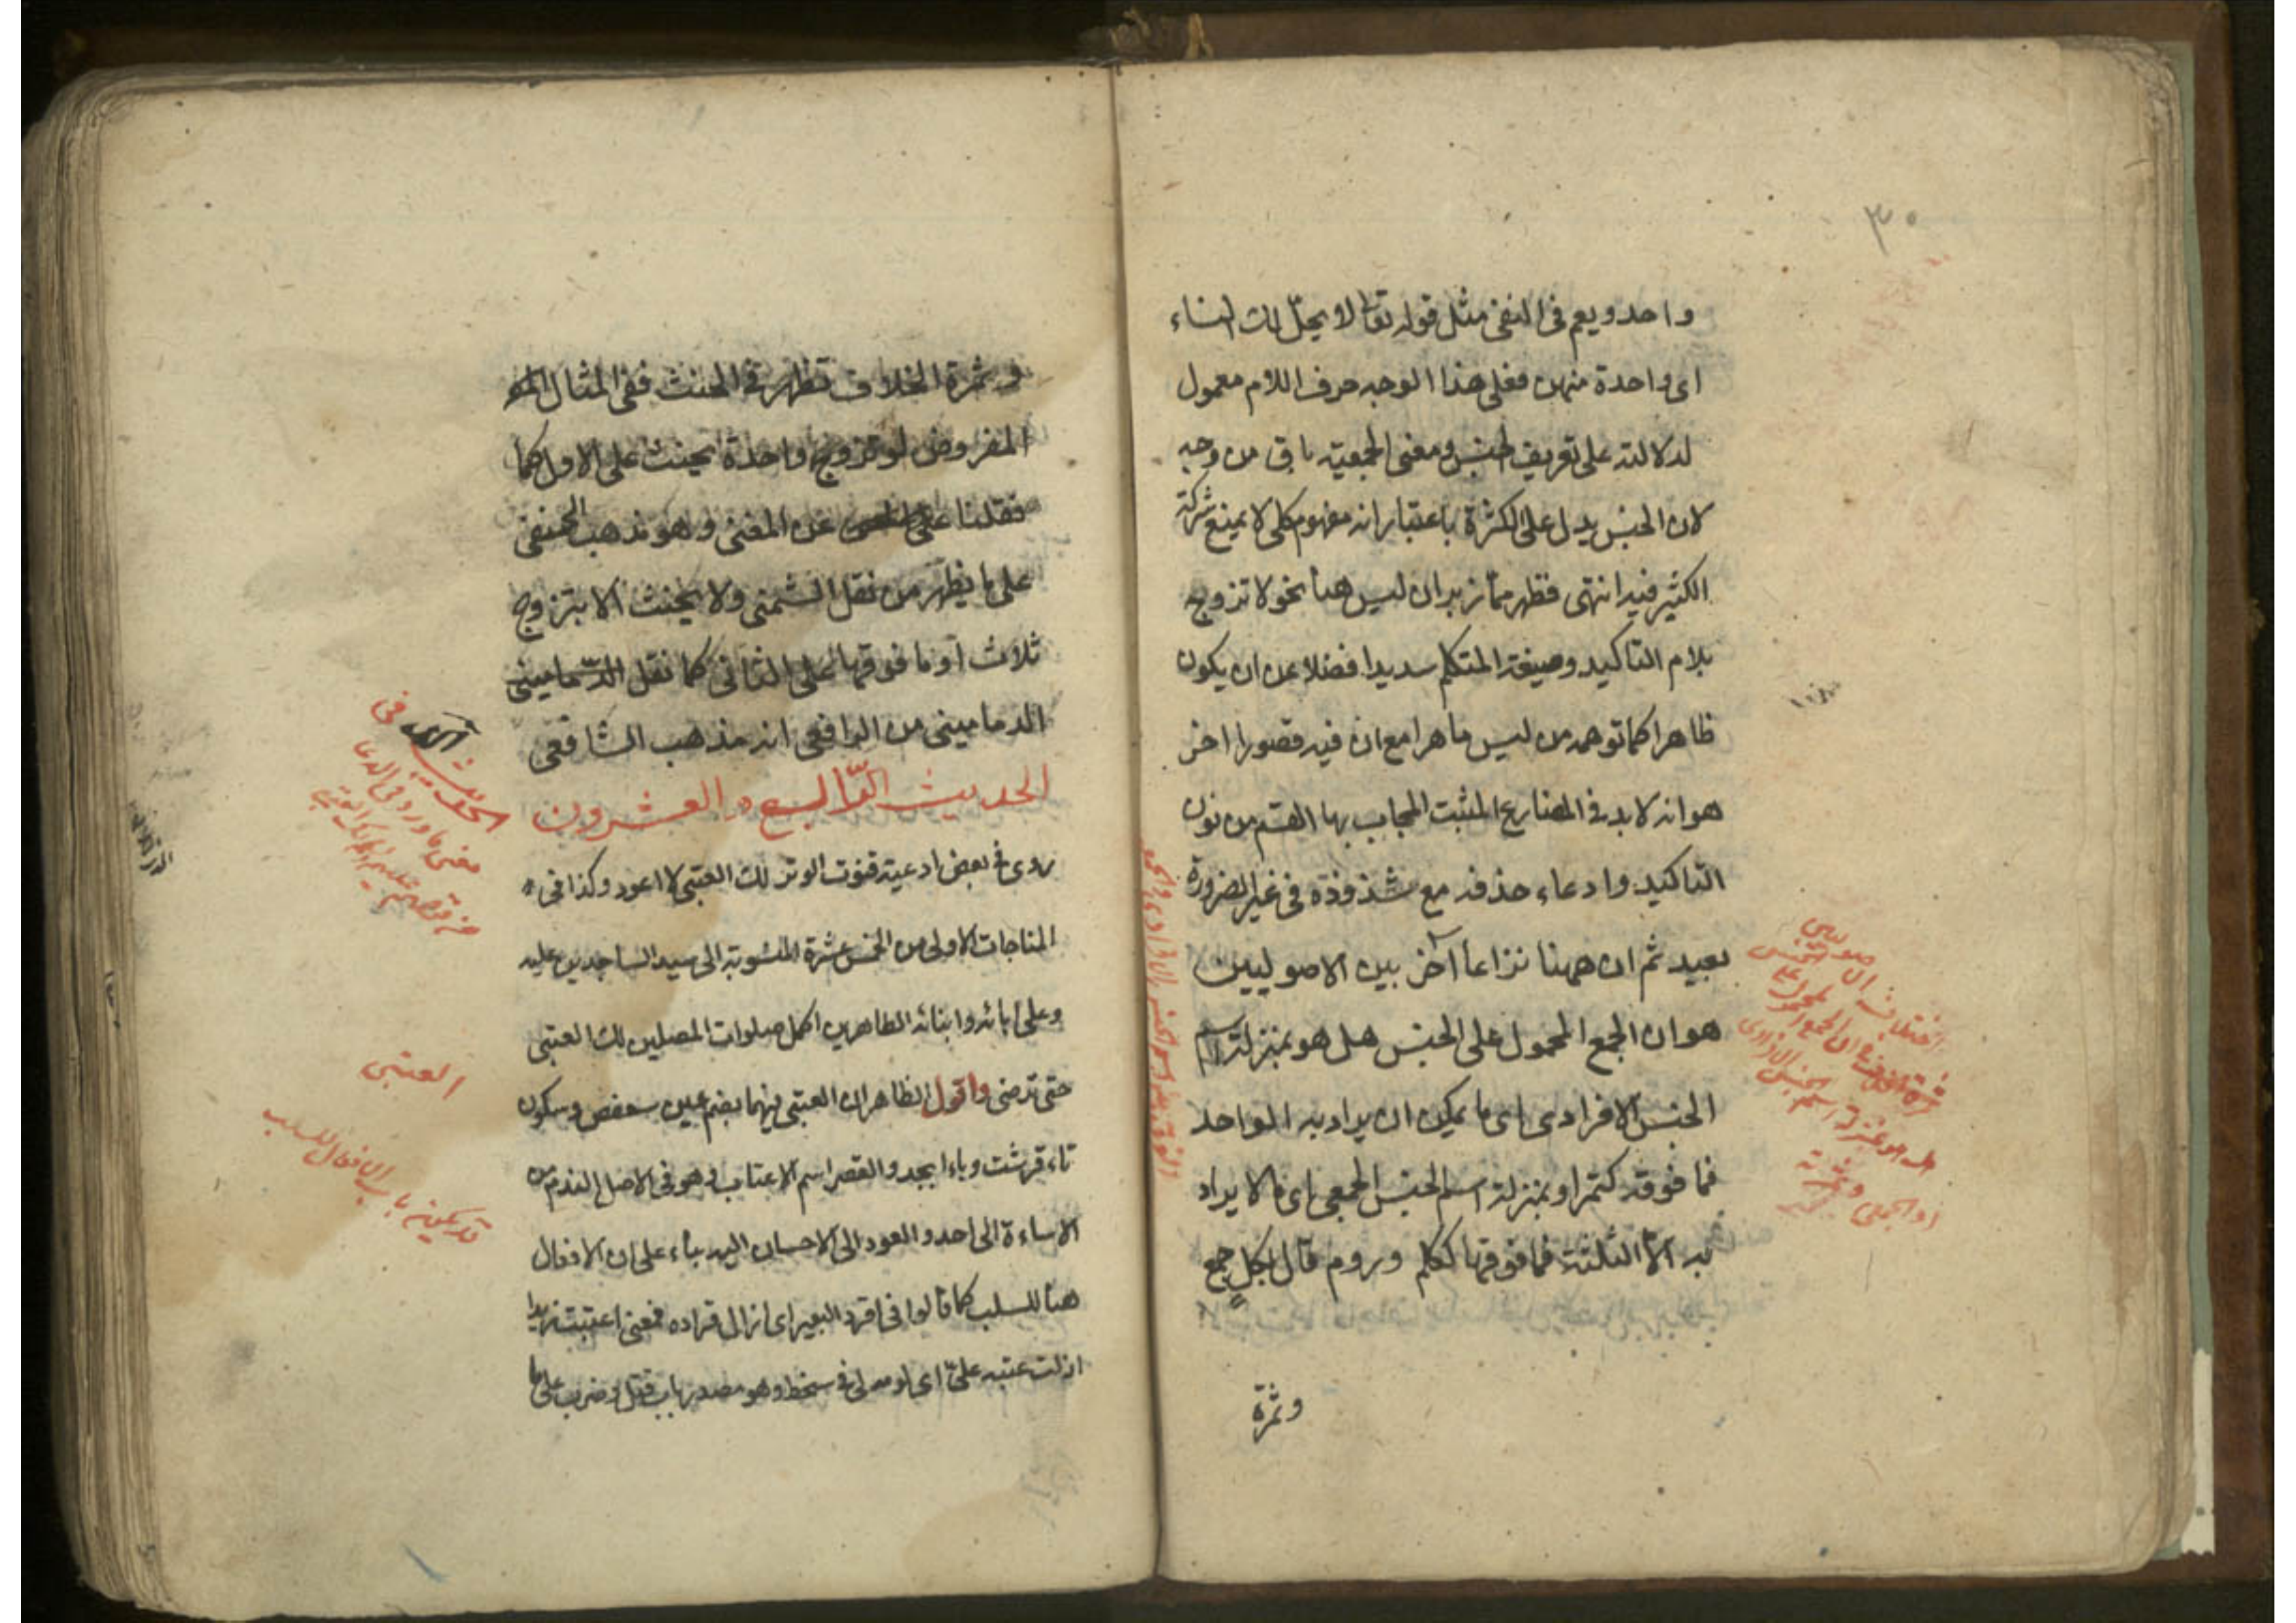 ٣٠
واحد ويعم فى النفى مثل قوله تعا لا يحلّ لك النساء
اى واحدة منهن فعلى هذا الوجه حرف اللام معمول
لدلالته على تعريف الجنس ومعنى الجمعية باق من وجه
لان الجنس يدل على الكثرة باعتبار انه مفهوم كلى لا يمنع شركة
الكثير فيه انتهى فظهر مما زبر ان ليس هنا نحو لا تزوج
بلام التاكيد وصيغة المتكلم سديدا فضلا عن ان يكون
ظاهرا كما توهمه من ليس ماهرا مع ان فيه قصورا اخر
هو انه لا بد فى المضارع المثبت المجاب بها القسم من نون
التاكيد وادعاء حذفه مع شذوذه فى غير الضرورة
بعيد ثم ان ههنا نزاعا آخر بين الاصوليين
هو ان الجمع المحمول على الجنس هل هو بمنزلة اسم
الجنس الافرادى اى ما يمكن ان يراد به الواحد
فما فوقه كتمر او بمنزلة اسم الجنس الجمعى اى ما لا يراد
به الا الثلثة فما فوقها ككلم وروم قال لكل جمع
وثمرة
وثمرة الخلاف تظهر فى الحنث ففى المثال
المفروض لو تزوج واحدة يحنث على الاول كما
نقلنا عن المغنى وهو مذهب الحنفى
على ما يظهر من نقل الشمنى ولا يحنث الا بتزوج
ثلاث او ما فوقها على الثانى كما نقل الدّمامينى
الدمامينى من الرافعى انه مذهب الشافعى
الحديث الرّابع و العشرون
روى فى بعض ادعية قنوت الوتر لك العتبى لا اعود وكذا فى
المناجات الاولى من الخمس عشرة المنسوبة الى سيد الساجدين عليه
وعلى ابائه وابنائه الطاهرين اكمل صلوات المصلين لك العتبى
حتى ترضى واقول الظاهر ان العتبى فيهما بضم عين سعفص وسكون
تاء قرشت وباء ابجد والقصر اسم الاعتاب وهو فى الاصل الندم من
الاساءة الى احد والعود الى الاحسان اليه بناء على ان الافعال
هنا للسلب كما قالوا فى اقرد البعير اى ازال قراده فمعنى اعتبت زيدا
ازلت عتبه علىّ اى لومه لى فى سخط وهو مصدر باب قتل وضرب على ما
العتبى
قد يجىء باب الافعال للسلب